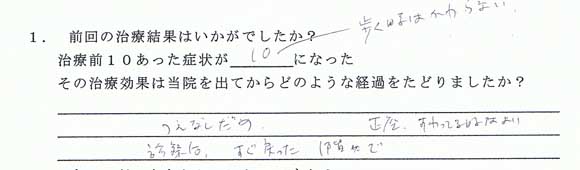 歩く時はかわらない。
1. 前回の治療結果はいかがでしたか？
治療前１０あった症状が 10 になった
その治療効果は当院を出てからどのような経過をたどりましたか？
つえなしだめ. 正座、すわってる
すぐ戻った 階段で